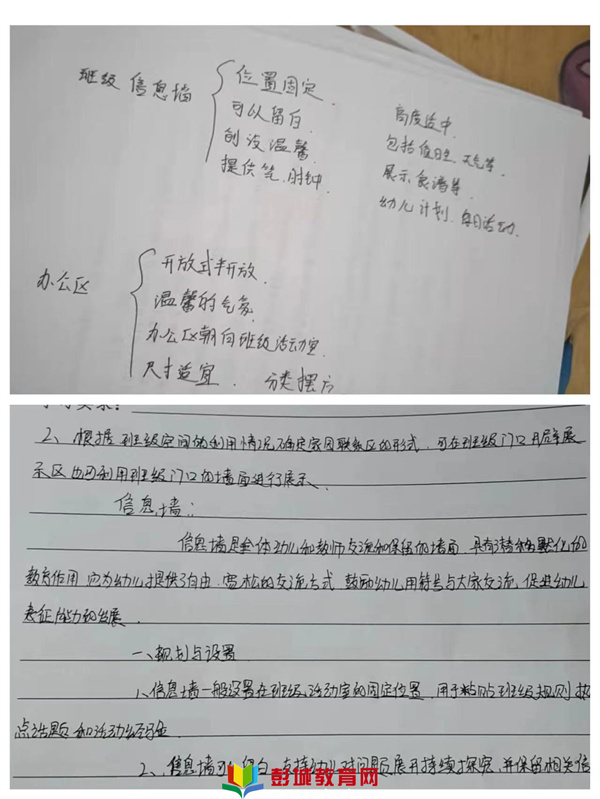 班级信息墙
位置固定.
可以留白.
创设温馨
提供笔.时钟.
高度适中.
包括值日生.天气等.
展示食谱等.
幼儿计划.每日活动.
办公区
开放式半开放.
温馨的气氛.
办公区朝向班级活动室
尺寸适宜. 分类摆放
2、根据班级空间的利用情况,确定家园联系区的形式.可在班级门口开辟展
示区也可利用班级门口的墙面进行展示.
信息墙:
信息墙是全体幼儿和教师交流和保留的墙面.具有潜移默化的
教育作用.应为幼儿提供了自由.宽松的交流方式.鼓励幼儿用符号与大家交流,促进幼儿
表征能力的发展.
一、规划与设置
1、信息墙一般设置在班级活动室的固定位置.用于粘贴班级规则.热
点话题和活动经验
2、信息墙可留白.支持幼儿对问题展开持续探究.并保留相关信
彭城教育网